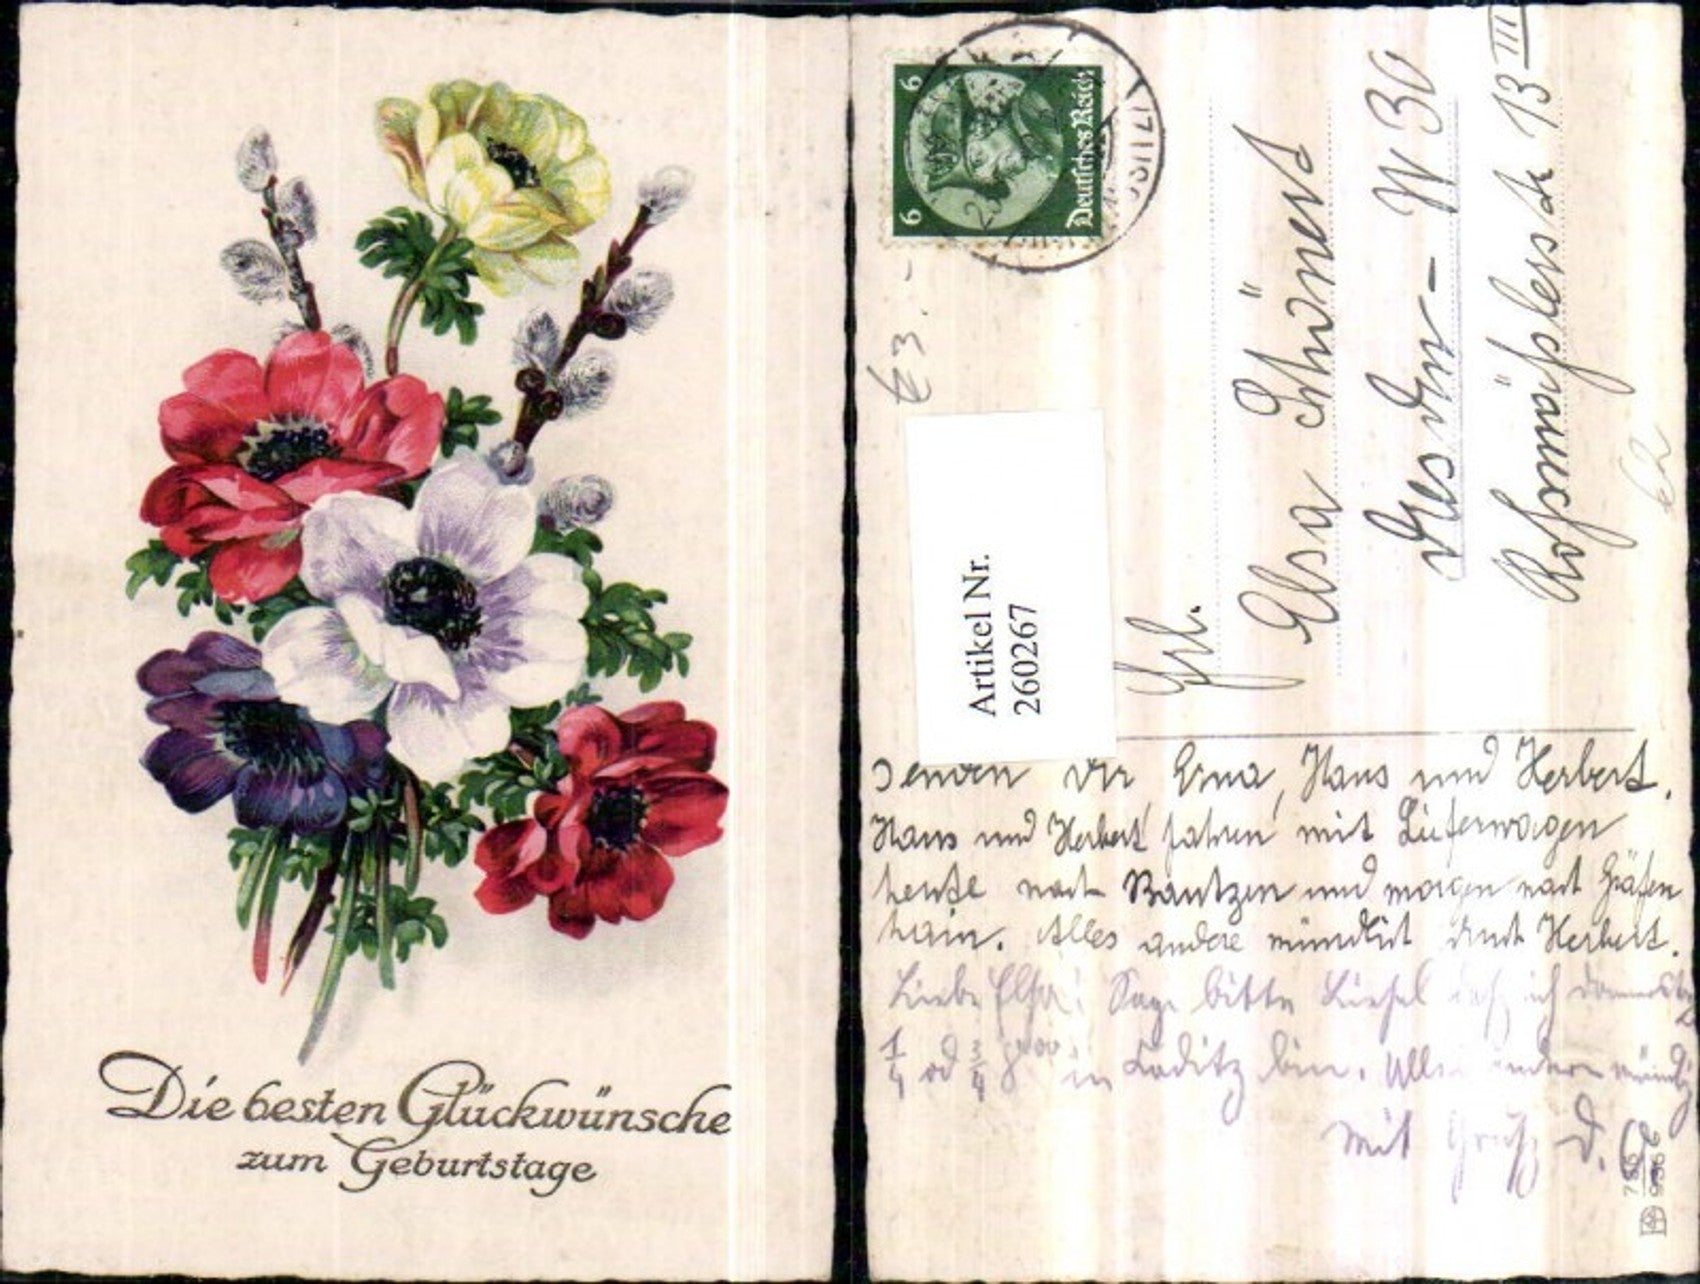 Die besten Glückwünsche
zum Geburtstage
6
6
Deutsches Reich
Artikel Nr.
260267
Frl.
Elsa Schönert
Dresden - W 30
13 III
senden Dir Erna, Hans und Herbert.
Hans und Herbert fahren mit Lieferwagen
heute nach Bautzen und morgen nach Gräfen
hain. Alles andere mündlich durch Herbert.
Liebe Elsa! Sage bitte Liesel daß ich Donnerstag
1/4 od 3/4 8 00 in Laditz bin. Alles andere
Mit Gruß D. O.